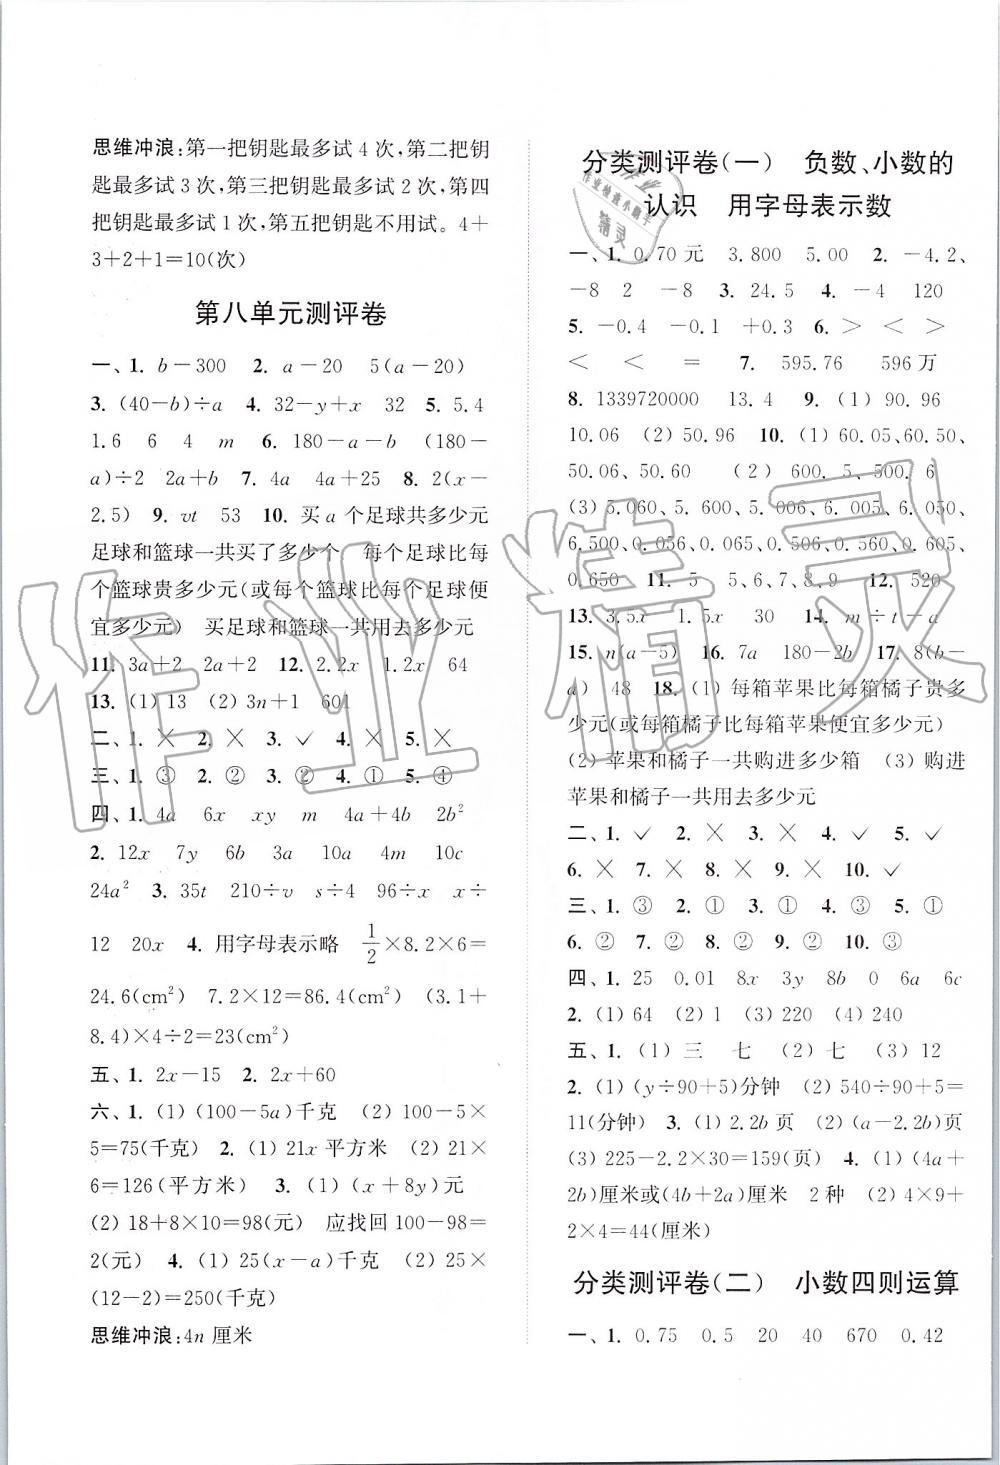 思维冲浪:第一把钥匙最多试 4 次,第二把钥
匙最多试 3 次,第三把钥匙最多试 2 次,第四
把钥匙最多试 1 次,第五把钥匙不用试。4+
3+2+1=10(次)
第八单元测评卷
一、1. b-300 2. a-20 5(a-20)
3. (40-b)÷a 4. 32-y+x 32 5. 5.4
1.6 6 4 m 6. 180-a-b (180-
a)÷2 2a+b 7. 4a 4a+25 8. 2(x-
2.5) 9. vt 53 10. 买 a 个足球共多少元
足球和篮球一共买了多少个 每个足球比每
个篮球贵多少元(或每个篮球比每个足球便
宜多少元) 买足球和篮球一共用去多少元
11. 3a+2 2a+2 12. 2.2x 1.2x 64
13. (1) 13 (2) 3n+1 601
二、1. × 2. × 3. ✓ 4. × 5. ×
三、1. ③ 2. ② 3. ② 4. ① 5. ④
四、1. 4a 6x xy m 4a+4b 2b²
2. 12x 7y 6b 3a 10a 4m 10c
24a² 3. 35t 210÷v s÷4 96÷x x÷
12 20x 4. 用字母表示略 1/2×8.2×6=
24.6(cm²) 7.2×12=86.4(cm²) (3.1+
8.4)×4÷2=23(cm²)
五、1. 2x-15 2. 2x+60
六、1. (1) (100-5a)千克 (2) 100-5×
5=75(千克) 2. (1) 21x 平方米 (2) 21×
6=126(平方米) 3. (1) (x+8y)元
(2) 18+8×10=98(元) 应找回 100-98=
2(元) 4. (1) 25(x-a)千克 (2) 25×
(12-2)=250(千克)
思维冲浪:4n 厘米
分类测评卷(一) 负数、小数的
认识 用字母表示数
一、1. 0.70 元 3.800 5.00 2. -4.2、
-8 2 -8 3. 24.5 4. -4 120
5. -0.4 -0.1 +0.3 6. > < >
< < = 7. 595.76 596 万
8. 1339720000 13.4 9. (1) 90.96
10.06 (2) 50.96 10. (1) 60.05、60.50、
50.06、50.60 (2) 600.5、500.6
(3) 5.060、5.600、5.006、6.005、6.050、
6.500、0.056、0.065、0.506、0.560、0.605、
0.650 11. 5 5、6、7、8、9 12. 520
13. 3.5x 1.5x 30 14. m÷t-a
15. n(a-5) 16. 7a 180-2b 17. 8(b-
a) 48 18. (1) 每箱苹果比每箱橘子贵多
少元(或每箱橘子比每箱苹果便宜多少元)
(2) 苹果和橘子一共购进多少箱 (3) 购进
苹果和橘子一共用去多少元
二、1. ✓ 2. × 3. × 4. ✓ 5. ✓
6. × 7. × 8. × 9. × 10. ✓
三、1. ③ 2. ① 3. ① 4. ③ 5. ①
6. ② 7. ② 8. ② 9. ② 10. ③
四、1. 25 0.01 8x 3y 8b 0 6a 6c
2. (1) 64 (2) 1 (3) 220 (4) 240
五、1. (1) 三 七 (2) 七 (3) 12
2. (1) (y÷90+5)分钟 (2) 540÷90+5=
11(分钟) 3. (1) 2.2b 页 (2) (a-2.2b)页
(3) 225-2.2×30=159(页) 4. (1) (4a+
2b)厘米或(4b+2a)厘米 2 种 (2) 4×9+
2×4=44(厘米)
分类测评卷(二) 小数四则运算
一、1. 0.75 0.5 20 40 670 0.42
作业精灵
作业检查小助手